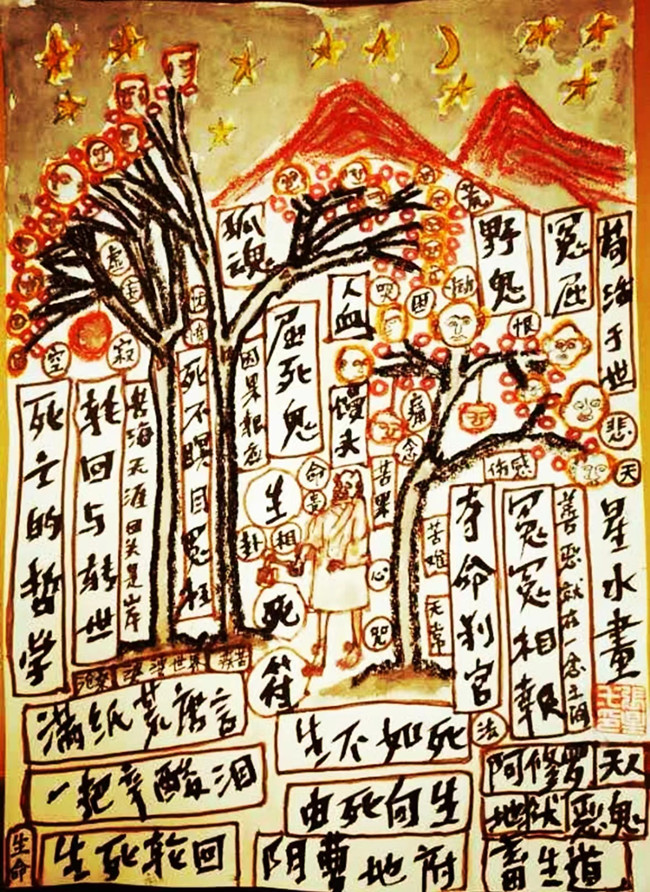 孤魂
野鬼
冤屈
荒
人血
馒头
哭
困
恨
悲
天
空
寂
虚
屈死鬼
因果报应
死不瞑目冤枉
苦海无涯回头是岸
轮回与转世
死亡的哲学
痛
念
苦果
命
生
卦
相
死
符
心
咒
苦难
无常
伤感
夺命刹宫
冤冤相报
善恶就在一念之间
星水畫
世界
疾苦
满纸荒唐言
一把辛酸泪
生死轮回
生命
生不如死
由死向生
阴曹地府
法
阿修罗
天人
地狱
恶鬼
畜生道